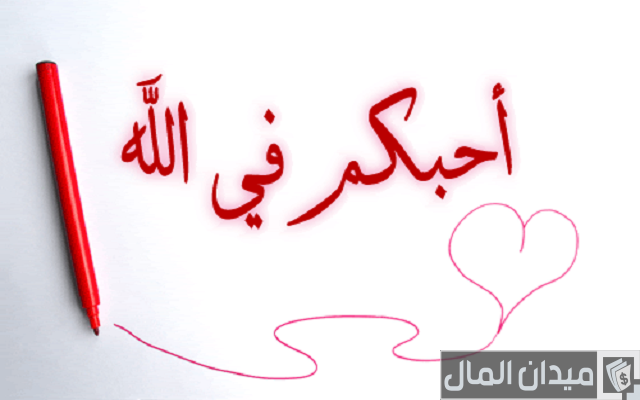 أحبكم في الله
ميدان المال